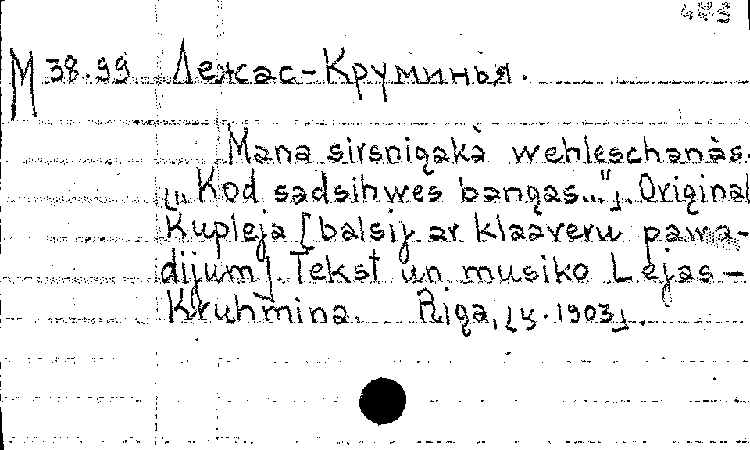 М 38.99 Лежас-Круминья.
Mana sirsnigakà wehleschanàs.
[„Kod sadsihwes bangas..."]. Original
Kupleja [balsij ar klaaveru pawa-
dijum]. Tekst un musiko Lejas-
Kruhmina. Riga, [y. 1903].